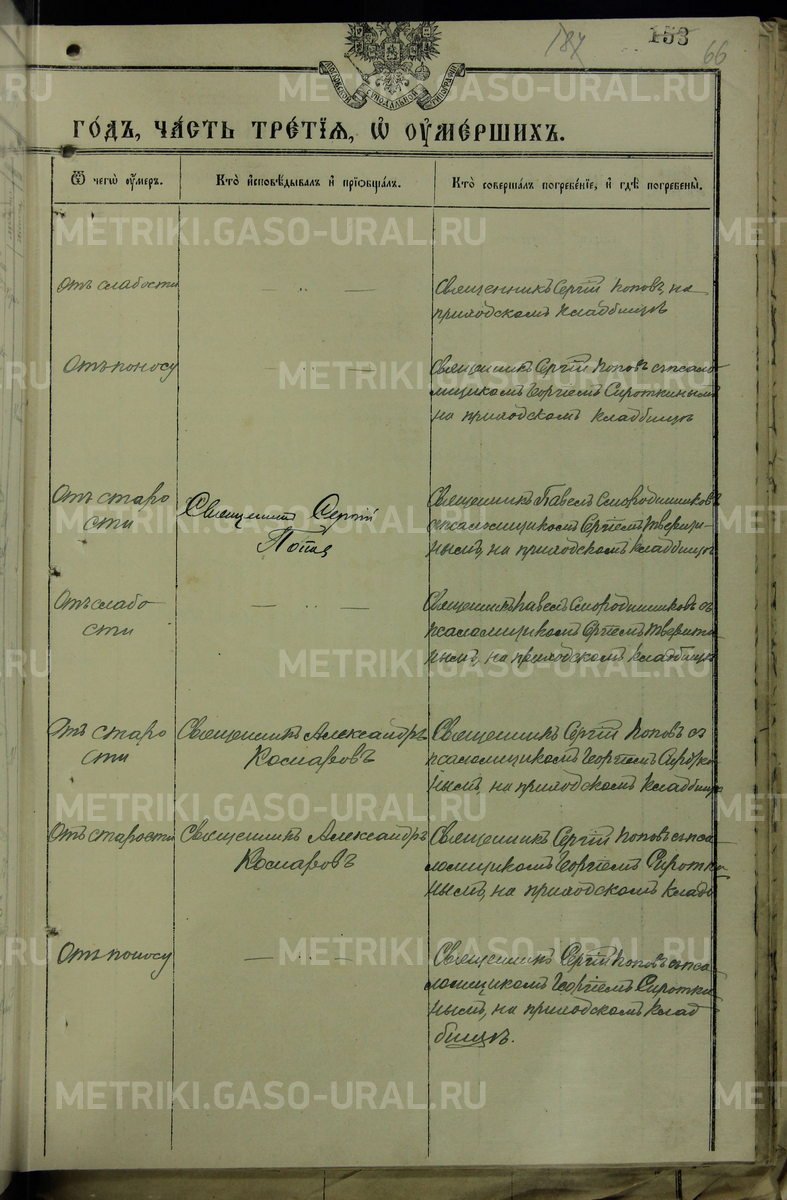 187 153 66
МОСКОВСКОЙ СѴНОДАЛЬНОЙ ТИПОГРАФІИ
ГО́ДЪ, ЧА́СТЬ ТРЕ́ТІѦ, Ѡ҆ ОУ҆МЕ́РШИХЪ.
Ѿ чегѡ̀ ᲂу҆́меръ.
Кто̀ и҆сповѣ́дывалъ и҆ прїѡбща́лъ.
Кто̀ соверша́лъ погребе́нїе, и҆ гдѣ̀ погребены̀.
Отъ слабости
— „ —
Священникъ Сергій Поповъ, на
приходскомъ кладбищѣ
Отъ поносу
— „ —
Священникъ Сергій Поповъ съ псало-
мщикомъ Георгіемъ Сироткинымъ
на приходскомъ кладбищѣ
Отъ старо
сти
Священникъ Сергій
Поповъ
Священникъ Павелъ Смородинниковъ
съ псаломщикомъ Сергіемъ Тверити-
нымъ, на приходскомъ кладбищѣ
Отъ слабо
сти
— „ —
Священникъ Павелъ Смородинниковъ съ
псаломщикомъ Сергіемъ Тверити-
нымъ, на приходскомъ кладбищѣ
Отъ старо
сти
Священникъ Александръ
Комаровъ
Священникъ Сергій Поповъ съ
псаломщикомъ Георгіемъ Сиротки
нымъ, на приходскомъ кладбищѣ
Отъ старости
Священникъ Александръ
Комаровъ
Священникъ Сергій Поповъ съ пса
ломщикомъ Георгіемъ Сиротки
нымъ, на приходскомъ кладб
Отъ поносу
— „ —
Священникъ Сергій Поповъ съ пса
ломщикомъ Георгіемъ Сиротки
нымъ, на приходскомъ клад
бищѣ.
METRIKI.GASO-URAL.RU